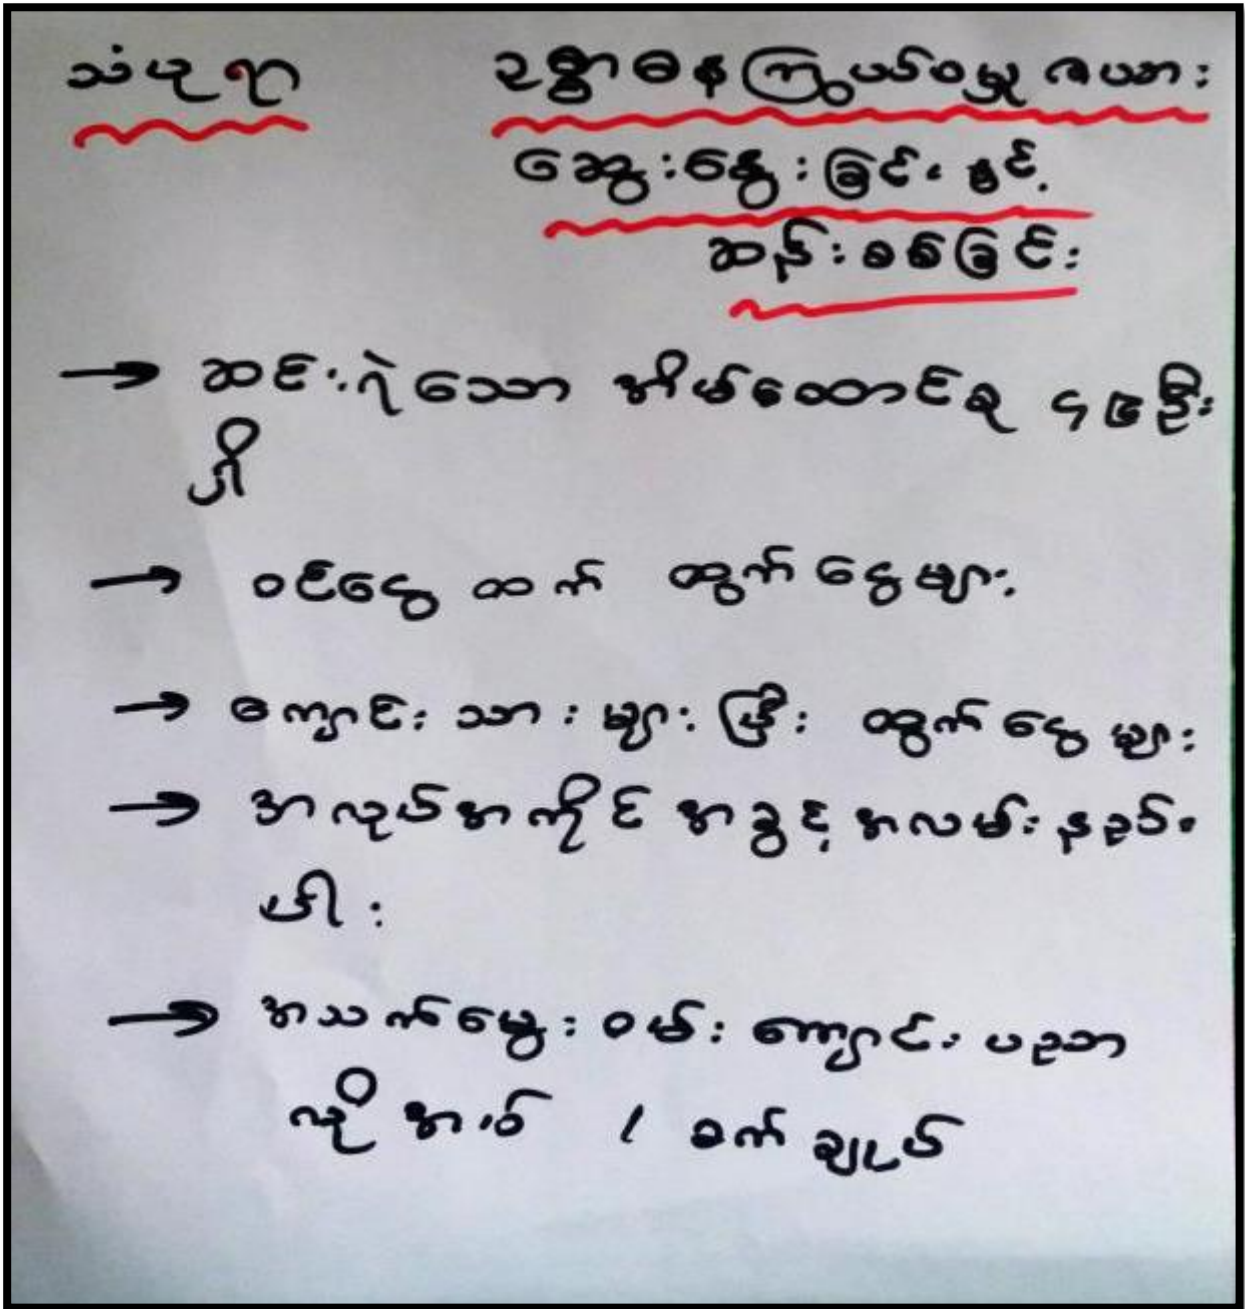 သံပုရာ ဥစ္စာဓန ကြွယ်ဝမှု ဇယား
ဆွေးနွေးခြင်း နှင့်
ဆန်းစစ်ခြင်း
→ ဆင်းရဲသော အိမ်ထောင်စု ၄ ဦး
ရှိ
→ ဝင်ငွေ ထက် ထွက်ငွေများ
→ ကျောင်းသားများပြီး ထွက်ငွေများ
→ အလုပ်အကိုင် အခွင့်အလမ်း နည်း
ပါး
→ အသက်မွေးဝမ်းကျောင်း ပညာ
လိုအပ် / စက်ချုပ်